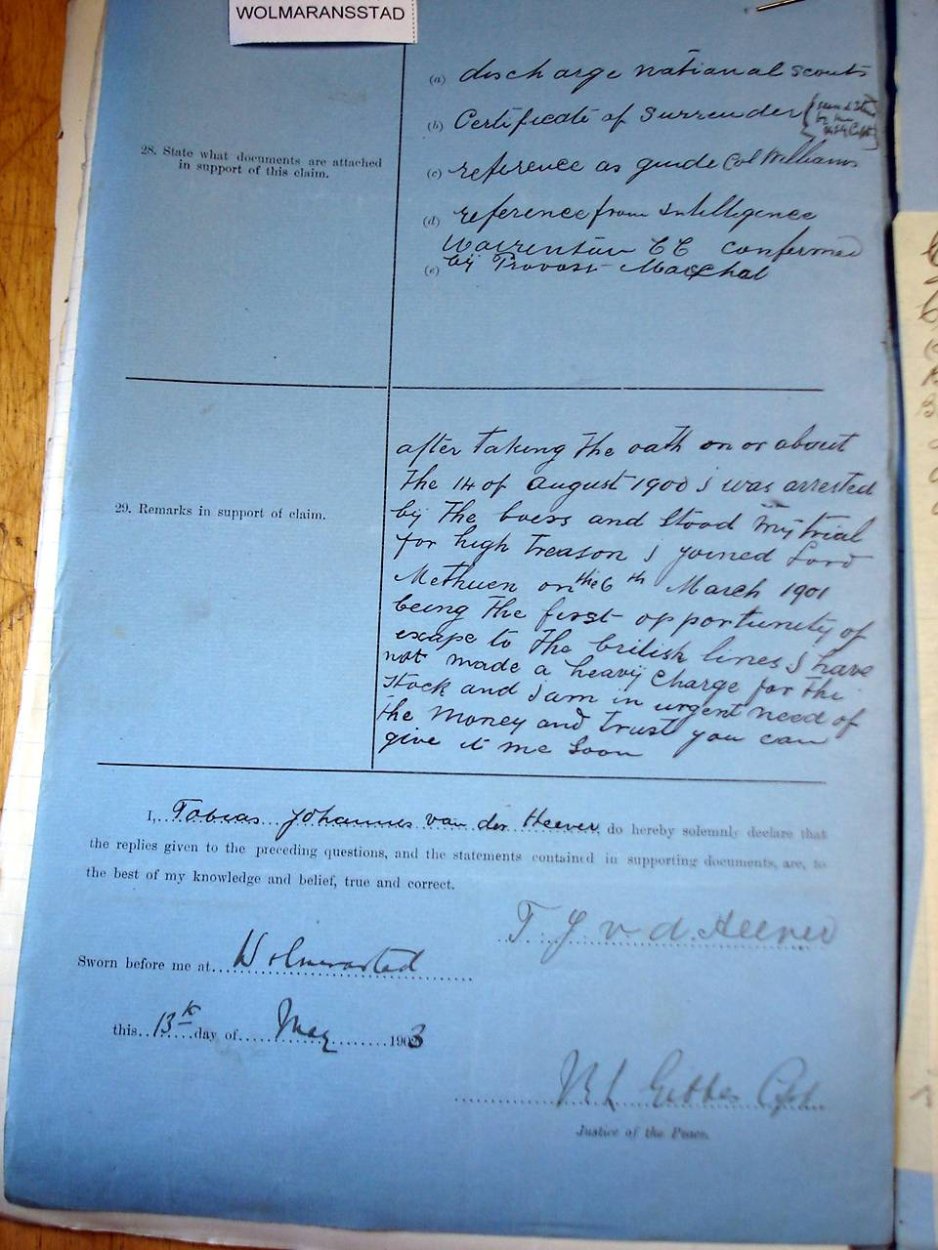 WOLMARANSSTAD
(a) discharge national scouts
(b) Certificate of Surrender
28. State what documents are attached
in support of this claim.
(c) reference as guide Col Williams
(d) reference from intelligence
Warrenton CC confirmed
(e) by Provost Marchal
after taking the oath on or about
the 14 of august 1900 i was arrested
29. Remarks in support of claim.
by the boers and stood my trial
for high treason i joined Lord
Methuen on the 6th March 1901
being the first opportunity of
escape to the british lines i have
not made a heavy charge for the
stock and i am in urgent need of
the money and trust you can
give it me soon
I, Tobias Johannes van der Heever, do hereby solemnly declare that
the replies given to the preceding questions, and the statements contained in supporting documents, are, to
the best of my knowledge and belief, true and correct.
T. J v. d. Heever
Sworn before me at Wolmarastad
this 13th day of May 1903
Gibbes Capt
Justice of the Peace.